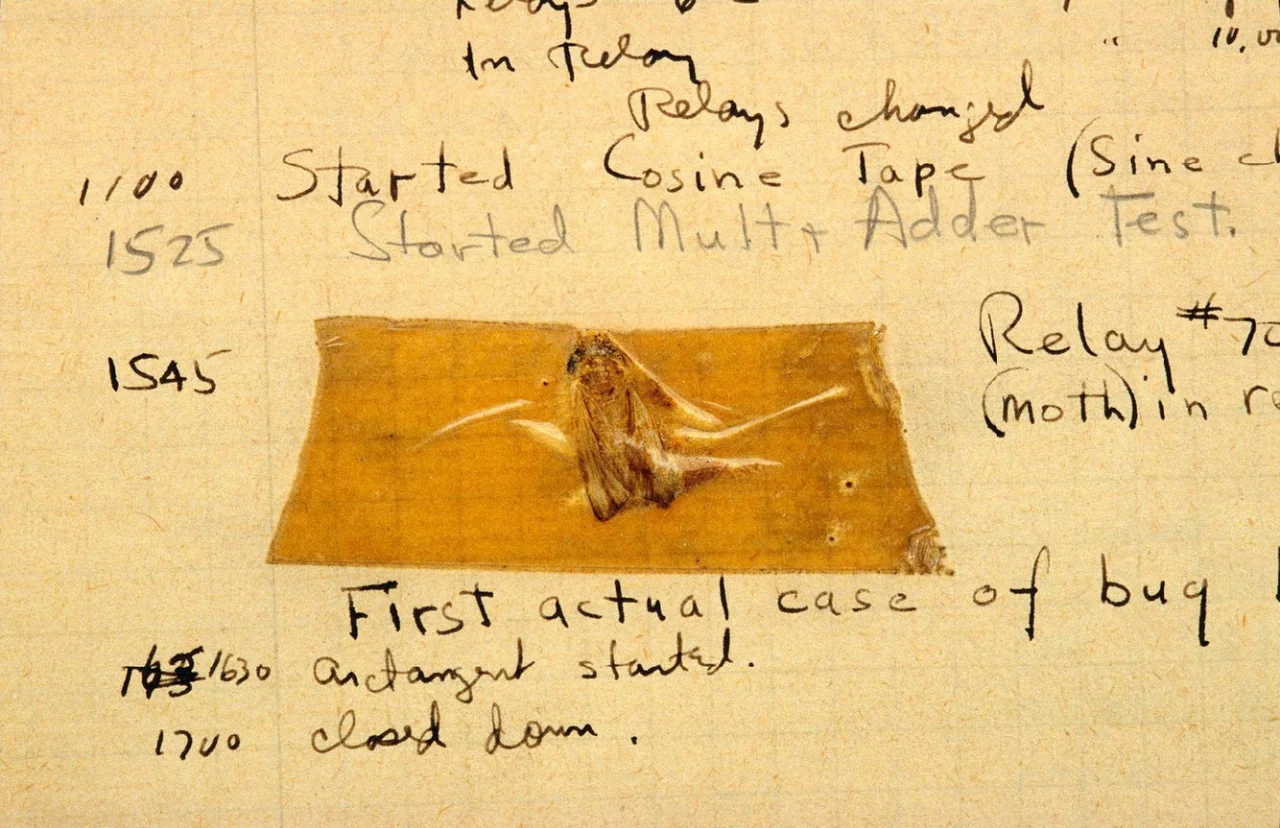 In Relay
" 10,00
Relays changed
1100 Started Cosine Tape (Sine c
1525 Started Mult + Adder Test.
1545 Relay #70
(moth) in re
First actual case of bug
1630 arctangent started.
1700 closed down.